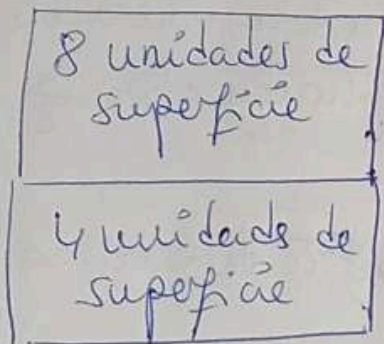 8 unidades de
superficie
4 unidads de
superficie